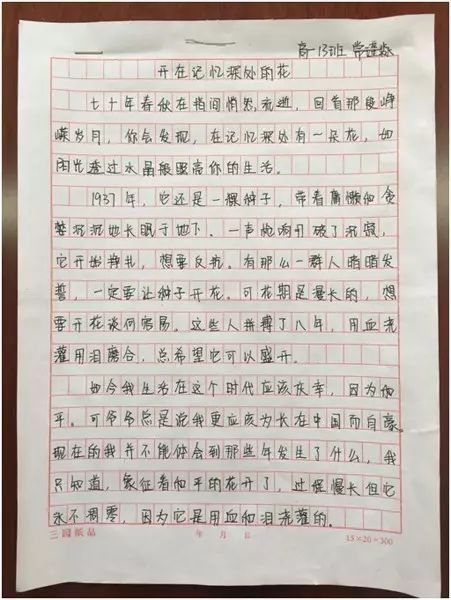 高一13班 常谨
开在记忆深处的花
七十年春秋在指间悄然流逝，回首那段峥
嵘岁月，你会发现，在记忆深处有一朵花，如
阳光透过水晶般照亮你的生活。
1937年，它还是一颗种子，带着慵懒和贪
婪沉沉地长眠于地下。一声炮响打破了沉寂，
它开始挣扎，想要反抗。有那么一群人暗暗发
誓，一定要让种子开花。可花期是漫长的，想
要开花谈何容易。这些人拼搏了八年，用血浇
灌用泪磨合，总希望它可以盛开。
如今我生活在这个时代应该庆幸，因为和
平。可爷爷总是说我更应该为长在中国而自豪。
现在的我并不能体会到那些年发生了什么，我
只知道，象征着和平的花开了，过程慢长但它
永不凋零，因为它是用血和泪浇灌的。
三园纸品 年 月 日 15×20=300